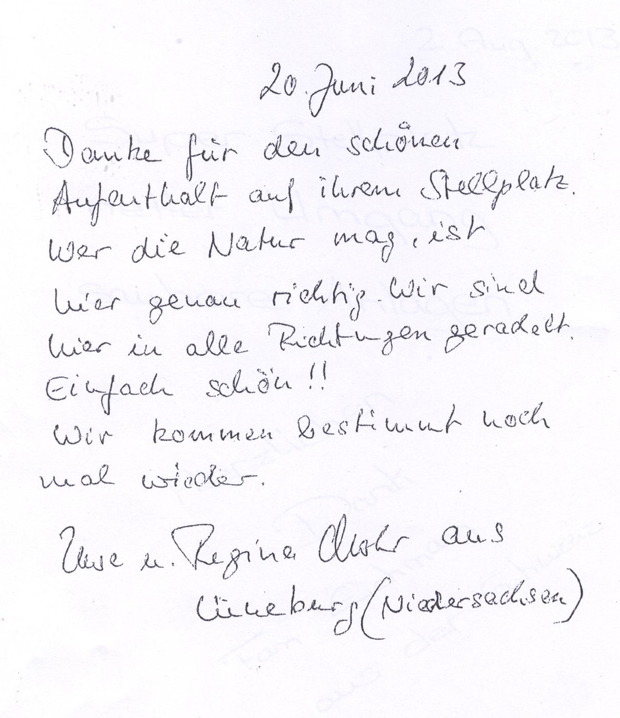 20. Juni 2013
Danke für den schönen
Aufenthalt auf ihrem Stellplatz.
Wer die Natur mag, ist
hier genau richtig. Wir sind
hier in alle Richtungen geradelt.
Einfach schön!!
Wir kommen bestimmt noch
mal wieder.
Uwe u. Regina aus
Lüneburg (Niedersachsen)
2. Aug. 2013